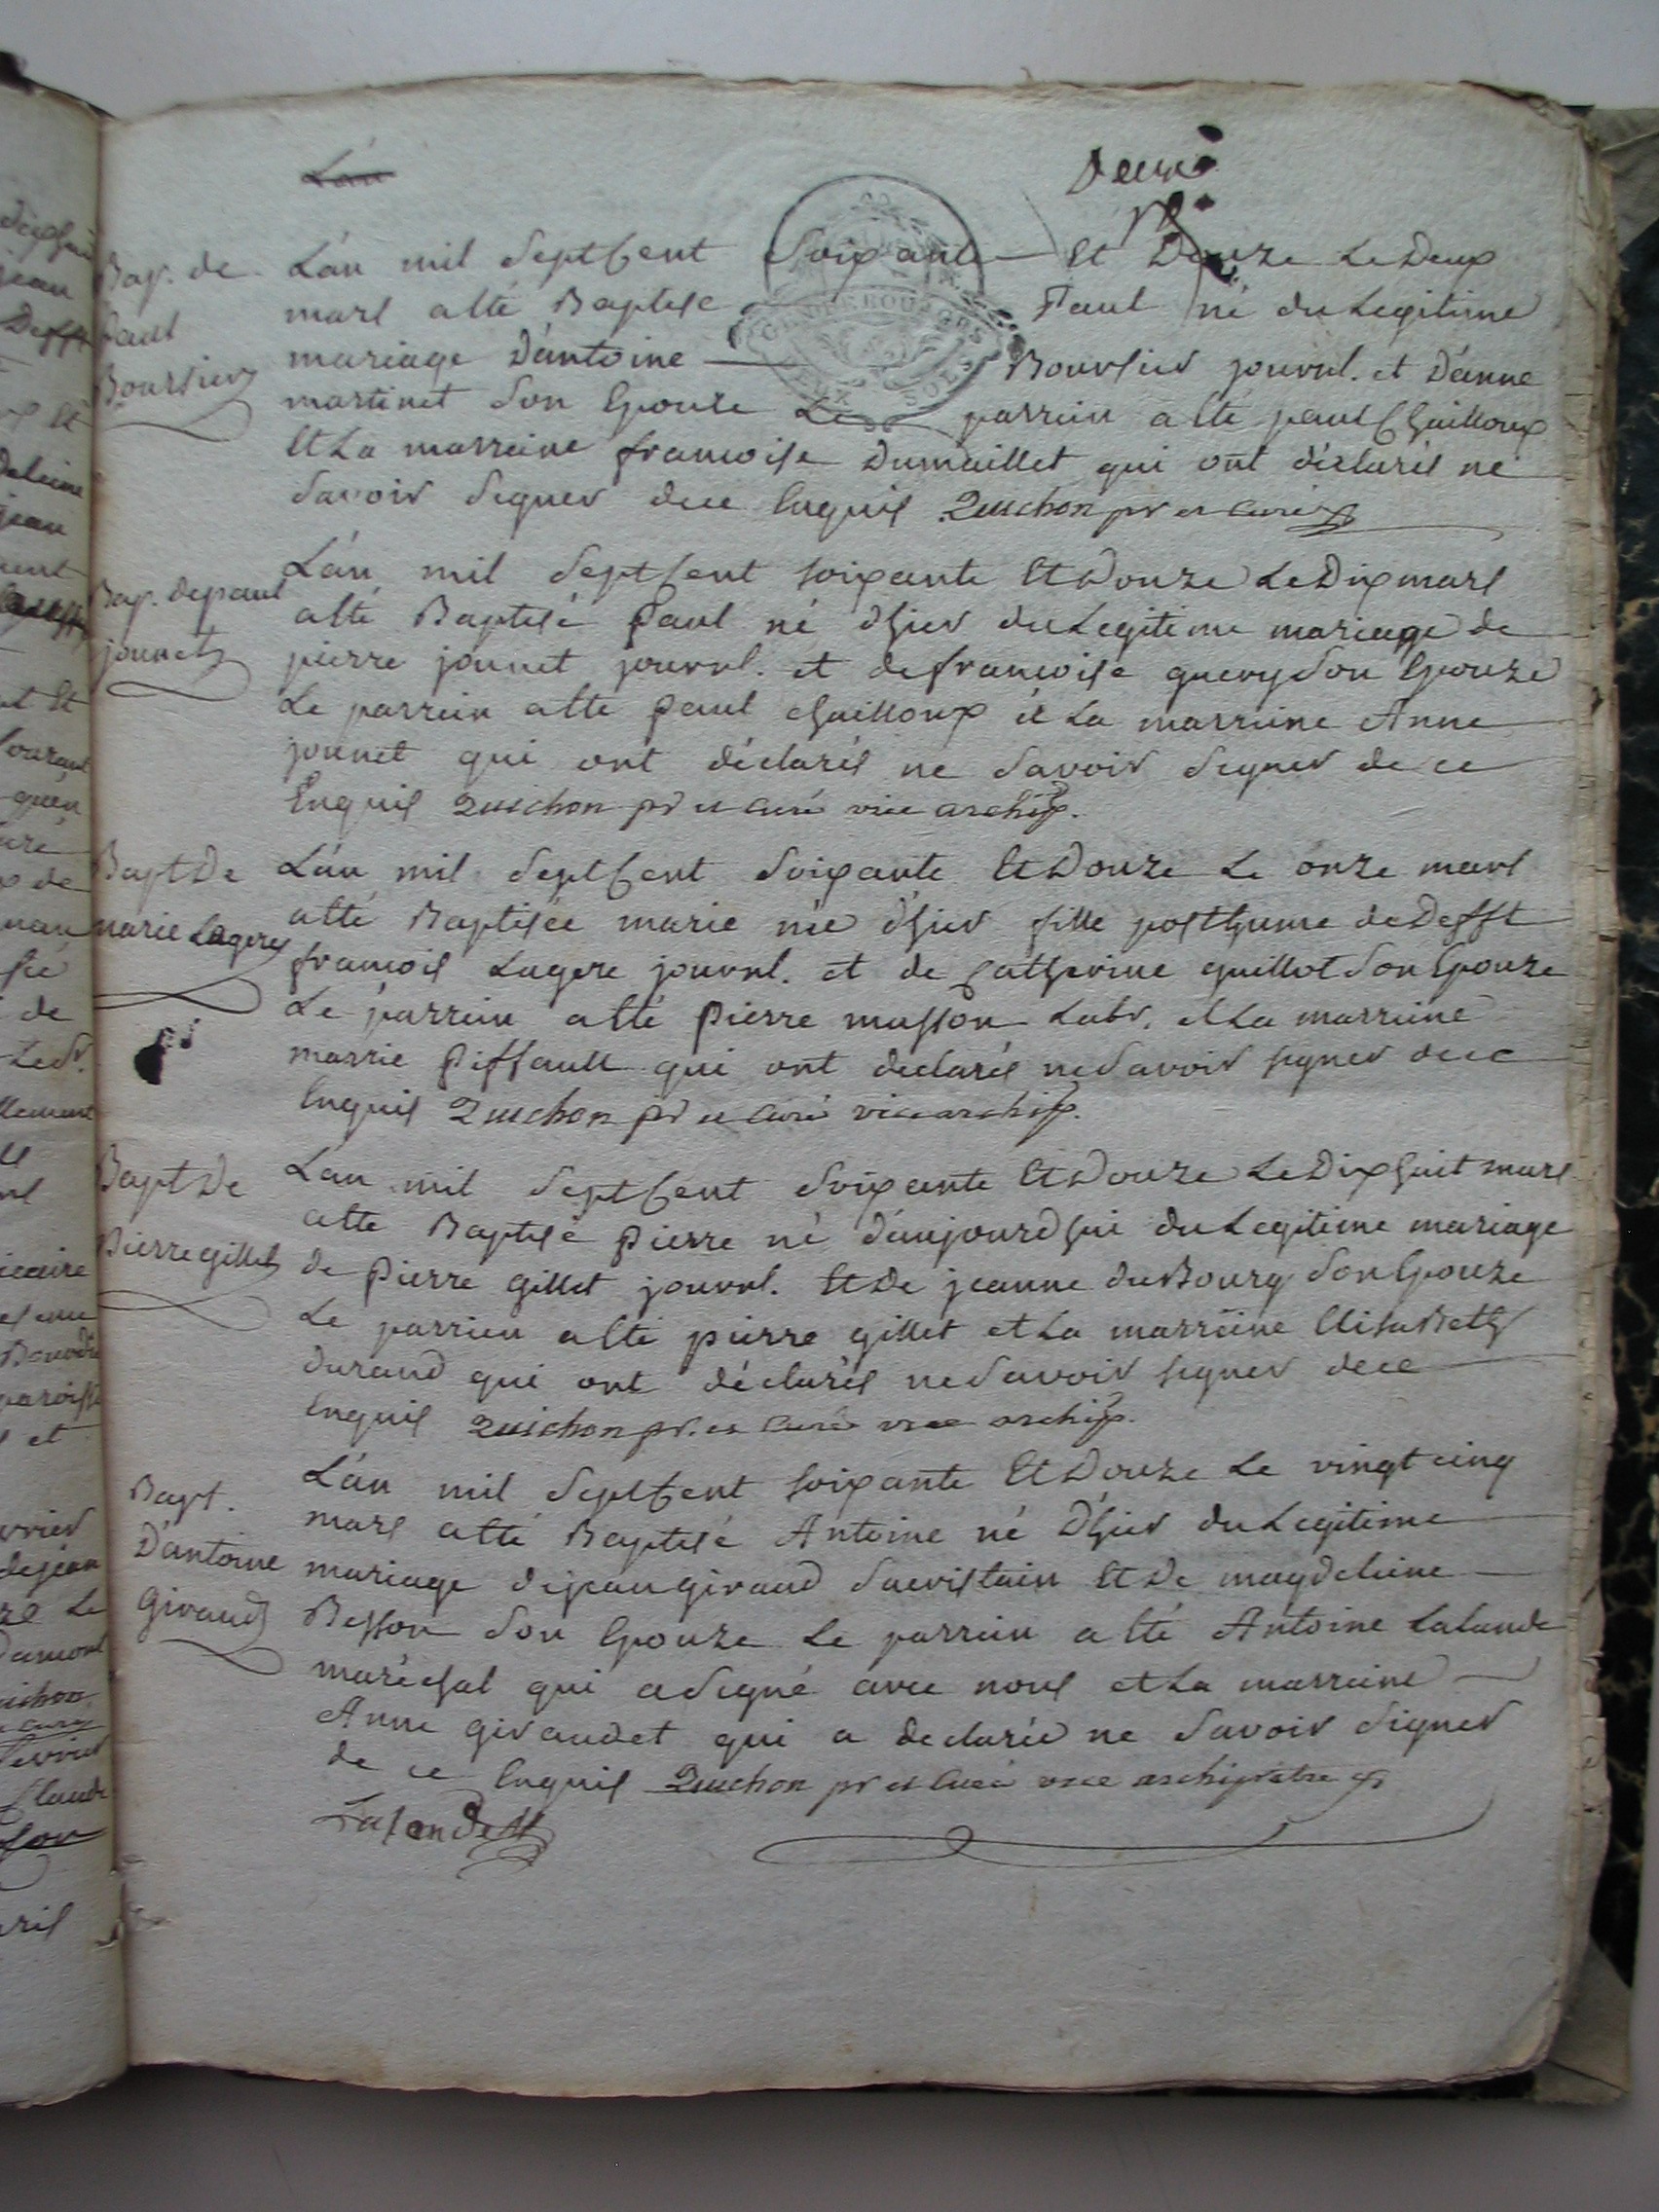 Lan
Deux
Bap. de
paul
Boursier
Lan mil Sept Cent Soixante et Douze Le Deux
mars a eté Baptisé Paul né du Legitime
mariage D'antoine Boursier journl. et D'anne
martinet Son Epouze Le parrein a eté paul Chailloux
Et La marreine francoise Dumaillet qui ont déclarés ne
Savoir Signer de ce Enquis Quichon pr et curé
Bap. de paul
jounet
Lan mil Sept Cent Soixante Et Douze Le Dix mars
a eté Baptisé paul né d'hier du Legitime mariage de
pierre jounet journl. et de francoise query Son Epouze
Le parrein a eté paul Chailloux et La marreine Anne
jounet qui ont déclarés ne Savoir Signer de ce
Enquis Quichon pr et curé vice archip.
Bapt De
marie Lagere
Lan mil Sept Cent Soixante Et Douze Le onze mars
a eté Baptisée marie née d'hier fille posthume de Defft
francois Lagere journl. et de Catherine guillot Son Epouze
Le parrein a eté pierre masson Labr. et La marreine
marie Piffault qui ont declarés ne Savoir signer de ce
Enquis Quichon pr et curé vice archip.
Bapt De
Pierre gillet
Lan mil Sept Cent Soixante Et Douze Le Dix huit mars
a eté Baptisé pierre né d'aujourdhui du Legitime mariage
de pierre gillet journl. Et De jeanne duBourg Son Epouze
Le parrein a eté pierre gillet et La marreine ElisaBeth
durand qui ont déclarés ne Savoir signer de ce
Enquis Quichon pr. et curé vice archip.
Bapt.
D'antoine
Giraud
Lan mil Sept Cent Soixante Et Douze Le vingt cinq
mars a eté Baptisé Antoine né D'hier du Legitime
mariage de jean giraud Sacristain Et De magdeleine
Besson Son Epouze Le parrein a eté Antoine Lalande
maréchal qui a Signé avec nous et La marreine
Anne giraudet qui a declarée ne Savoir Signer
de ce Enquis Quichon pr et curé vice archiprêtre
Lalande